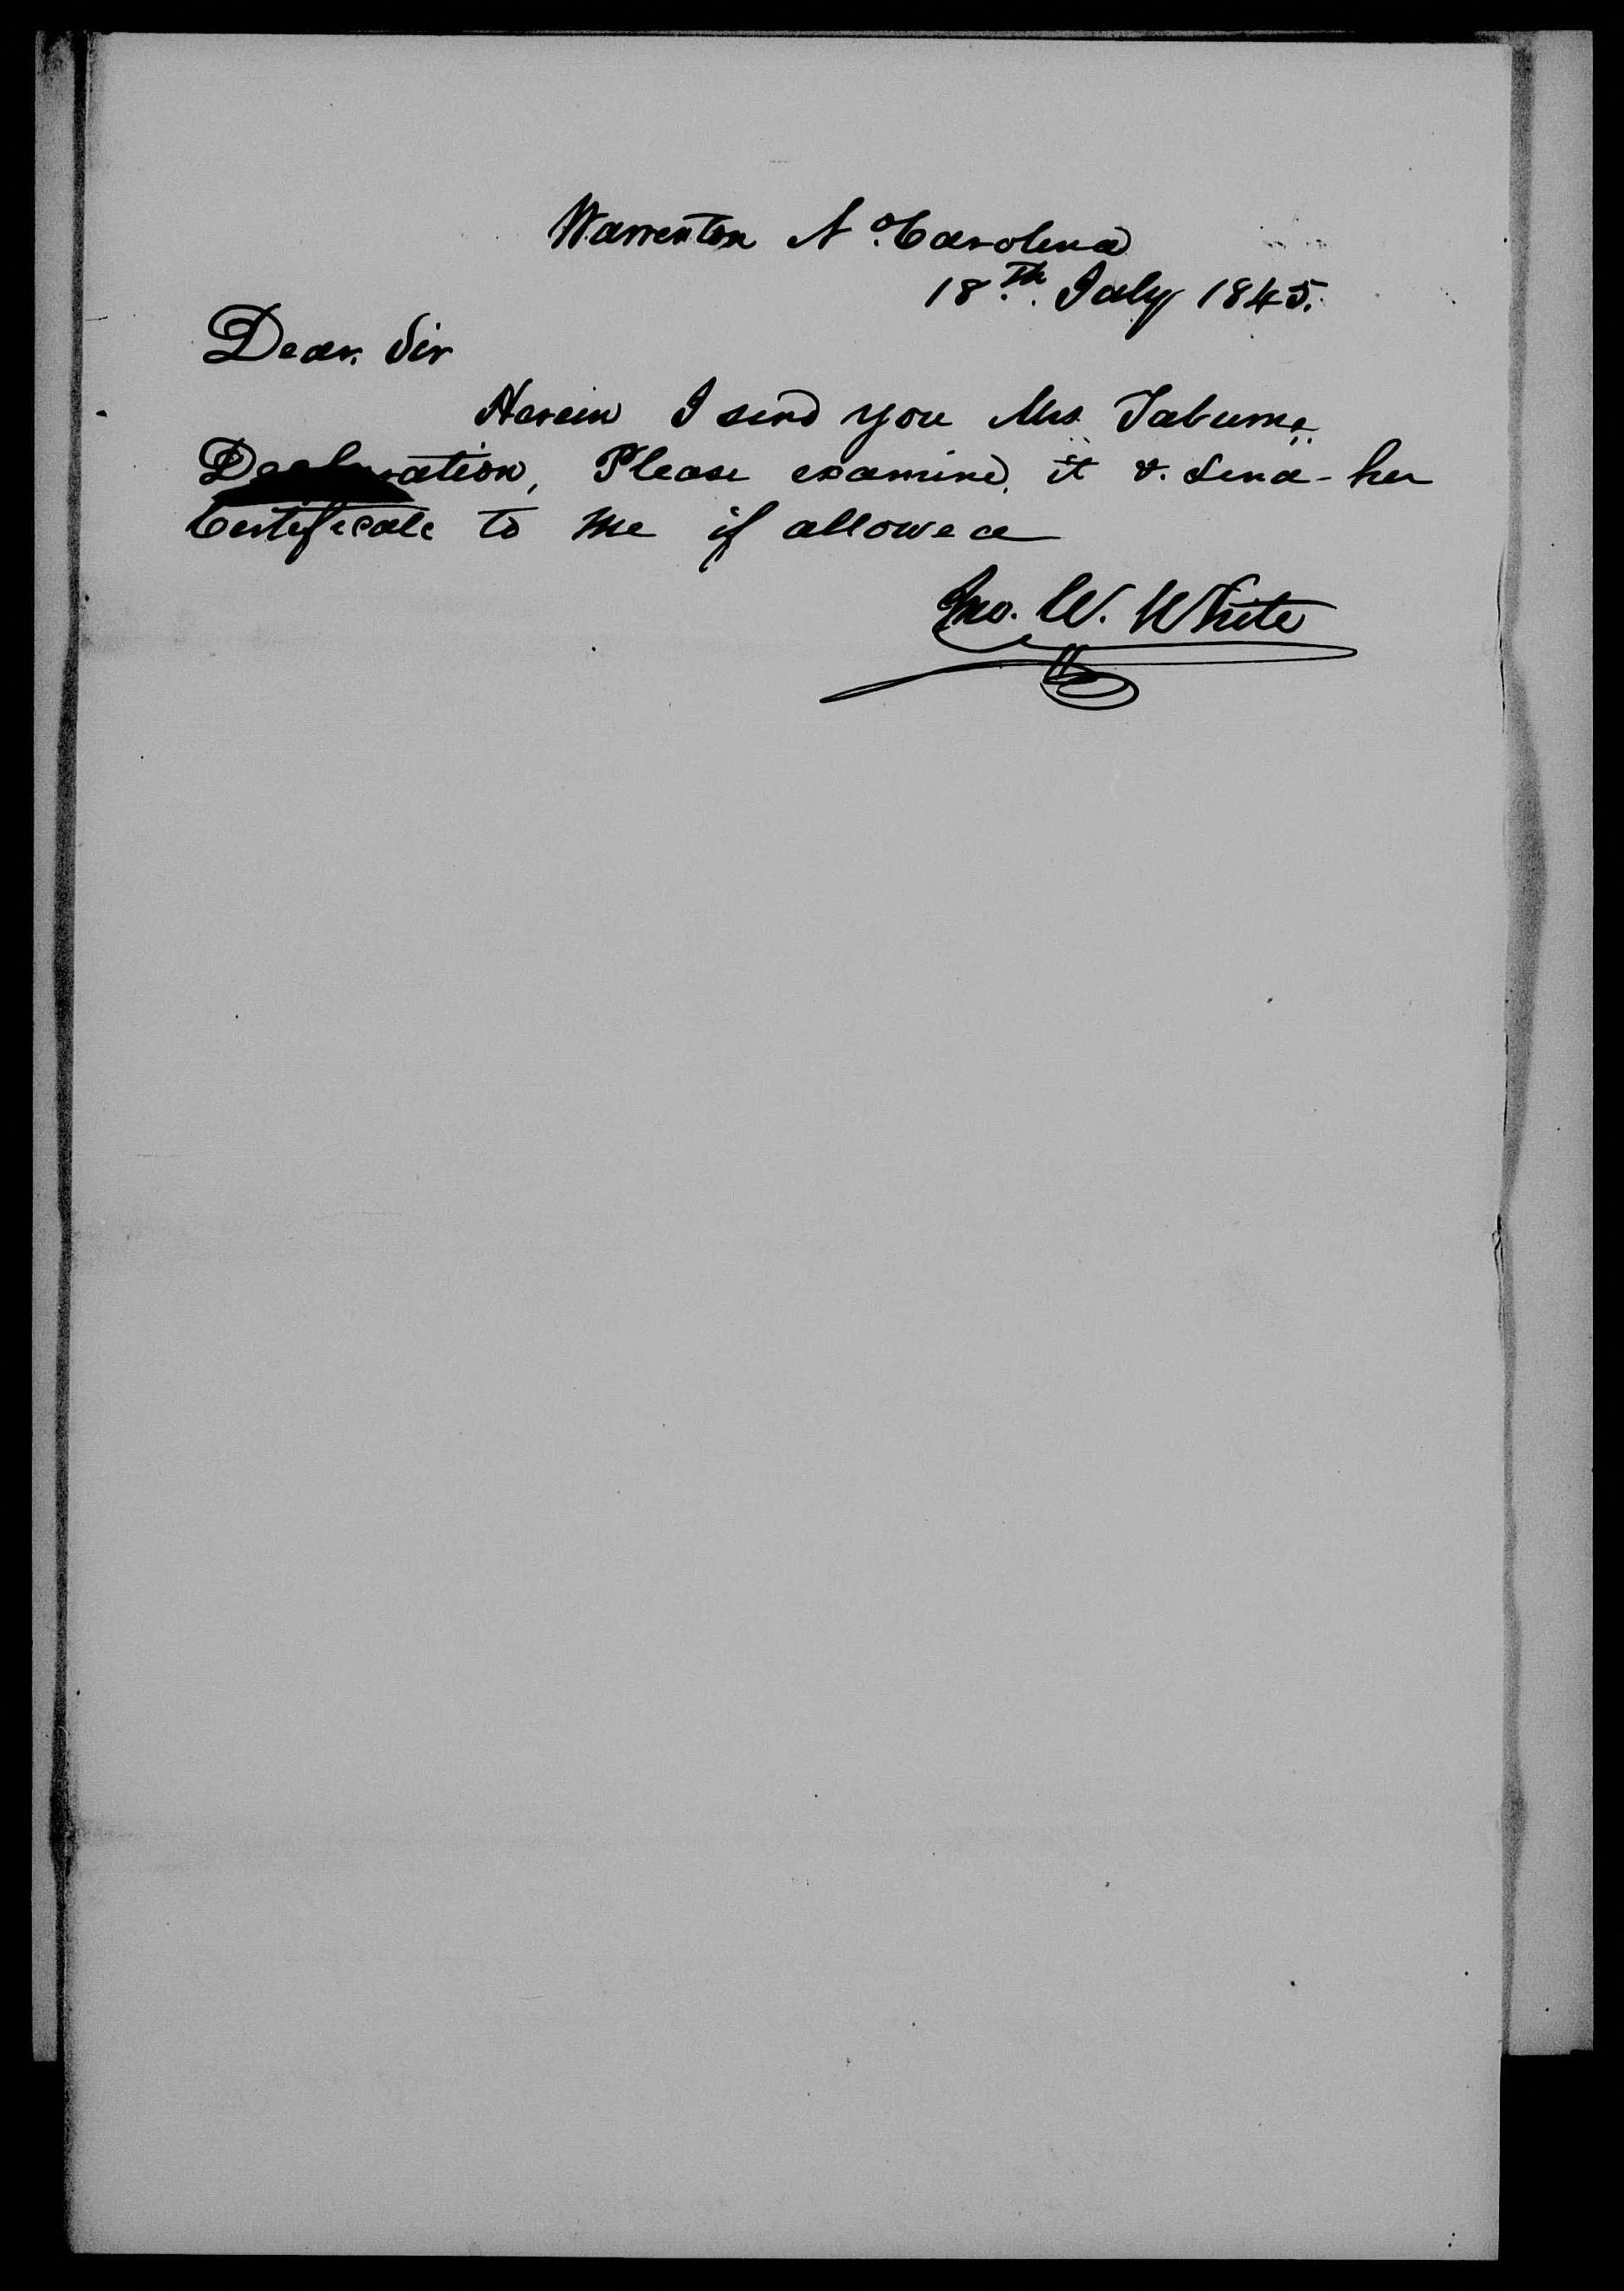 Warrenton N. Carolina
18th. July 1845.
Dear Sir
Herein I send you Mrs Taburns
Declaration, Please examine it & send her
Certificate to me if allowed
Jno. W. White